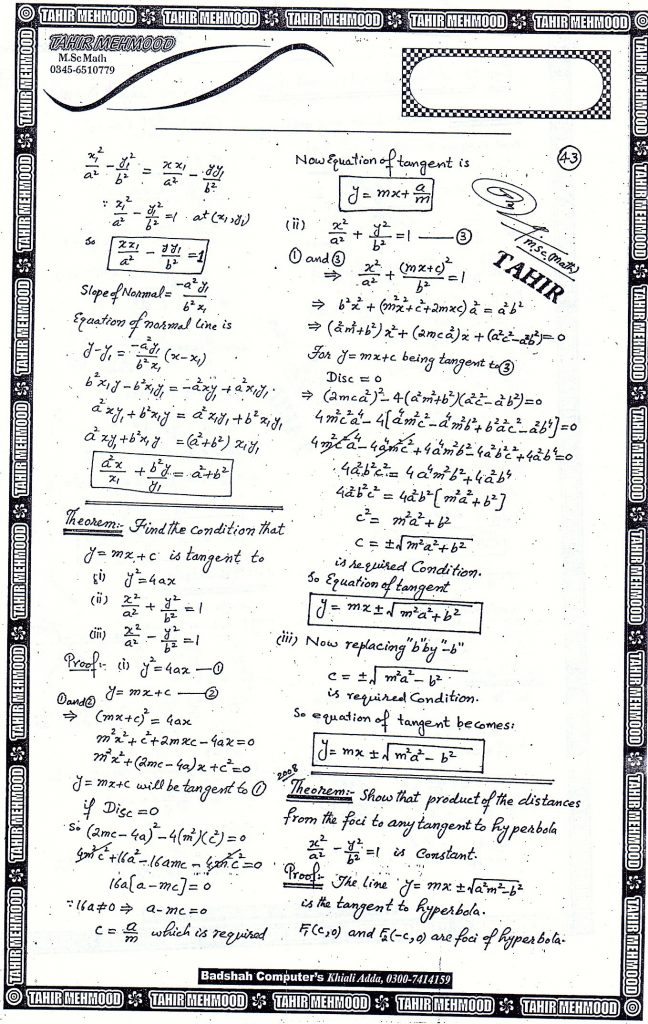 TAHIR MEHMOOD TAHIR MEHMOOD TAHIR MEHMOOD TAHIR MEHMOOD TAHIR MEHMOOD
TAHIR MEHMOOD
M.Sc Math
0345-6510779
x₁²/a² - y₁²/b² = xx₁/a² - yy₁/b²
∵ x₁²/a² - y₁²/b² = 1 at (x₁,y₁)
So xx₁/a² - yy₁/b² = 1
Slope of Normal = -a²y₁/b²x₁
Equation of normal line is
y-y₁ = -a²y₁/b²x₁ (x-x₁)
b²x₁y - b²x₁y₁ = -a²xy₁ + a²x₁y₁
a²xy₁ + b²x₁y = a²x₁y₁ + b²x₁y₁
a²xy₁ + b²x₁y = (a²+b²) x₁y₁
a²x/x₁ + b²y/y₁ = a²+b²
Theorem:- Find the condition that
y = mx + c is tangent to
(i) y² = 4ax
(ii) x²/a² + y²/b² = 1
(iii) x²/a² - y²/b² = 1
Proof:- (i) y² = 4ax —①
y = mx + c —②
① and ②
⇒ (mx+c)² = 4ax
m²x² + c² + 2mxc - 4ax = 0
m²x² + (2mc - 4a)x + c² = 0
y = mx+c will be tangent to ①
if Disc = 0
So (2mc - 4a)² - 4(m²)(c²) = 0
4m²c² + 16a² - 16amc - 4m²c² = 0
16a[a - mc] = 0
∵ 16a ≠ 0 ⇒ a - mc = 0
c = a/m which is required
Now Equation of tangent is
43
y = mx + a/m
M.Sc (Math)
TAHIR
(ii) x²/a² + y²/b² = 1 —③
① and ③
⇒ x²/a² + (mx+c)²/b² = 1
⇒ b²x² + (m²x² + c² + 2mxc) a² = a²b²
⇒ (a²m²+b²) x² + (2mca²)x + (a²c² - a²b²) = 0
For y = mx+c being tangent to ③
Disc = 0
⇒ (2mca²)² - 4(a²m²+b²)(a²c² - a²b²) = 0
4m²c²a⁴ - 4[a⁴m²c² - a⁴m²b² + b²a²c² - a²b⁴] = 0
4m²c²a⁴ - 4a⁴m²c² + 4a⁴m²b² - 4a²b²c² + 4a²b⁴ = 0
4a²b²c² = 4a⁴m²b² + 4a²b⁴
4a²b²c² = 4a²b² [m²a² + b²]
c² = m²a² + b²
c = ±√m²a² + b²
is required Condition.
So Equation of tangent
y = mx ± √m²a² + b²
(iii) Now replacing "b" by "-b"
c = ±√m²a² - b²
is required Condition.
So equation of tangent becomes:
y = mx ± √m²a² - b²
2008
Theorem:- Show that product of the distances
from the foci to any tangent to hyperbola
x²/a² - y²/b² = 1 is Constant.
Proof:- The line y = mx ± √a²m² - b²
is the tangent to hyperbola.
F₁(c,0) and F₂(-c,0) are foci of hyperbola.
Badshah Computer's Khiali Adda, 0300-7414159
TAHIR MEHMOOD TAHIR MEHMOOD TAHIR MEHMOOD TAHIR MEHMOOD TAHIR MEHMOOD